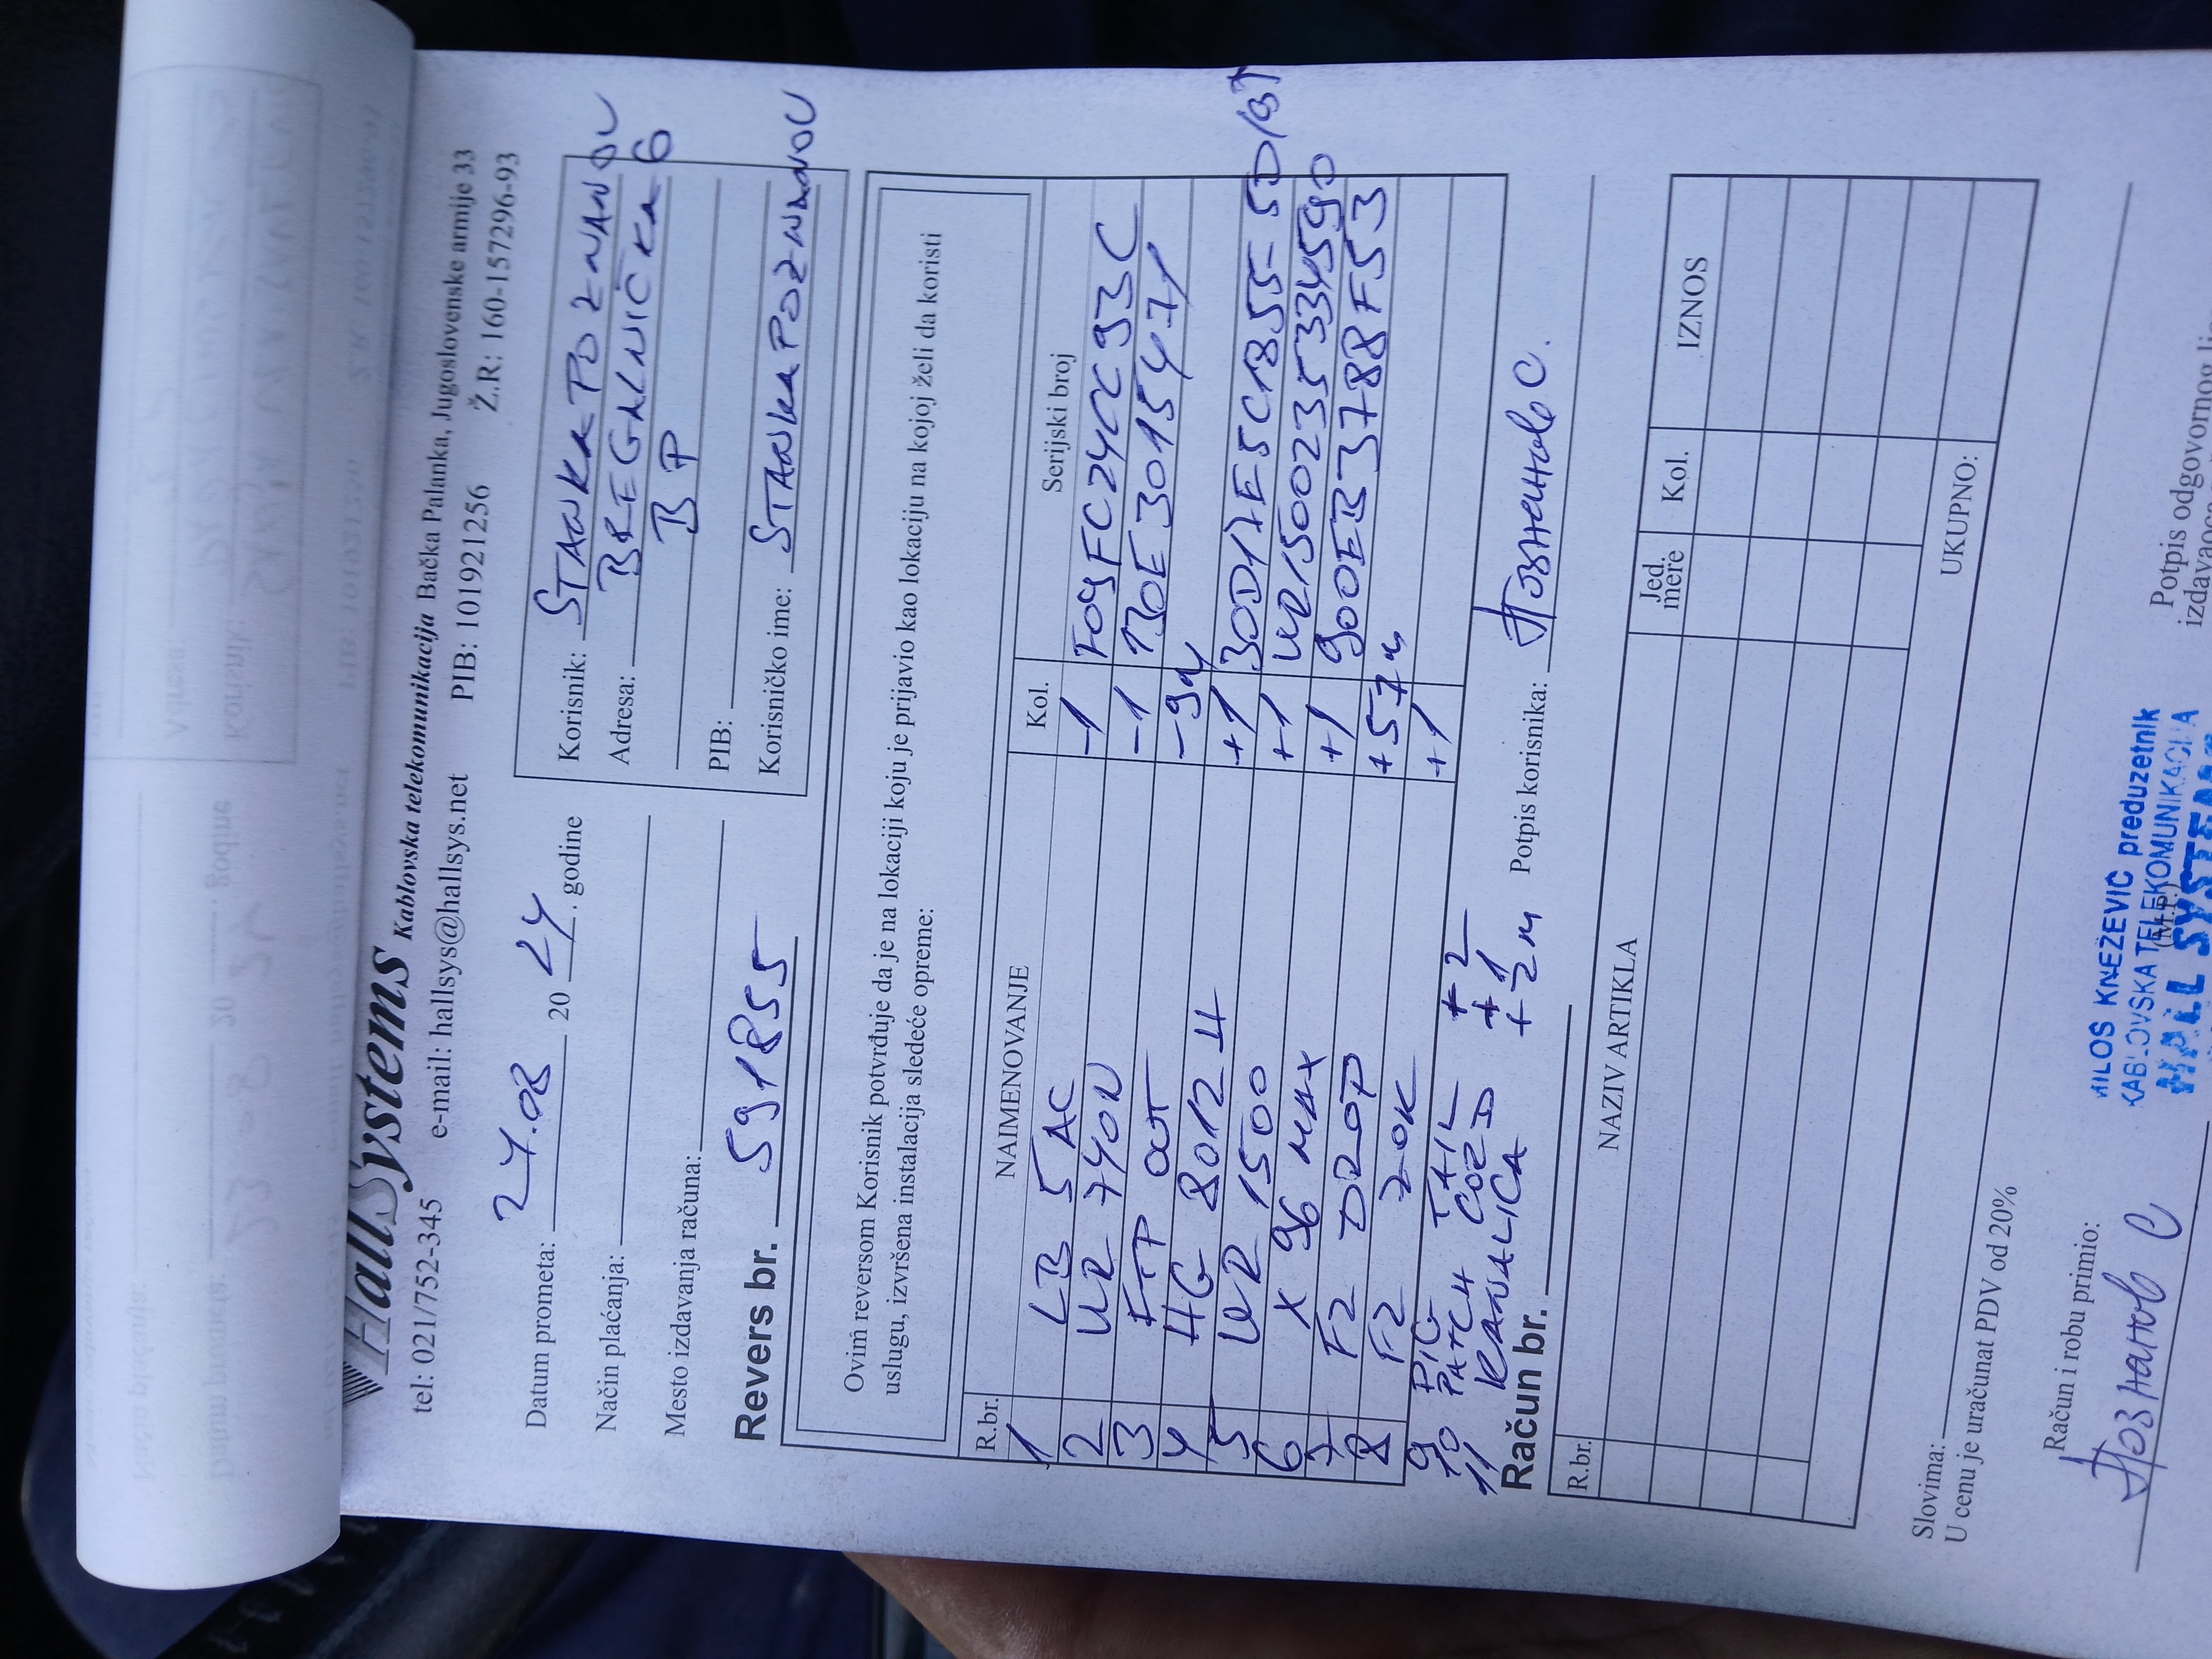 HallSystems Kablovska telekomunikacija Bačka Palanka, Jugoslovenske armije 33
tel: 021/752-345 e-mail: hallsys@hallsys.net PIB: 101921256 Ž.R: 160-157296-93
Datum prometa: 27.08 2024. godine
Način plaćanja:
Mesto izdavanja računa:
Revers br. 591855
Korisnik: STANKA POZNANOV
Adresa: BREGALNIČKA 6
BP
PIB:
Korisničko ime: STANKA POZNANOV
Ovim reversom Korisnik potvrđuje da je na lokaciji koju je prijavio kao lokaciju na kojoj želi da koristi
uslugu, izvršena instalacija sledeće opreme:
R.br. NAIMENOVANJE Kol. Serijski broj
1 LB 5 AC -1 F09FC24CC93C
2 WR 740N -1 130E3015471
3 FTP OUT -9m
4 HG 8012 H +1 30D17E5C1855-5D
5 WR 1500 +1 WR1500235334590
6 X 96 MAX +1 900EB3788F53
7 FZ DROP +57m
8 FZ ROK +1
9 PIG TAIL +2
10 PATCH CORD +1
11 KANALICA +2m
Potpis korisnika: Познанов С.
Račun br.
R.br. NAZIV ARTIKLA Jed. mere Kol. IZNOS
UKUPNO:
Slovima:
U cenu je uračunat PDV od 20%
Račun i robu primio:
Познанов С
(M.P.)
MILOS KNEZEVIC preduzetnik
KABLOVSKA TELEKOMUNIKACIJA
HALL SYSTEMS
Potpis odgovornog